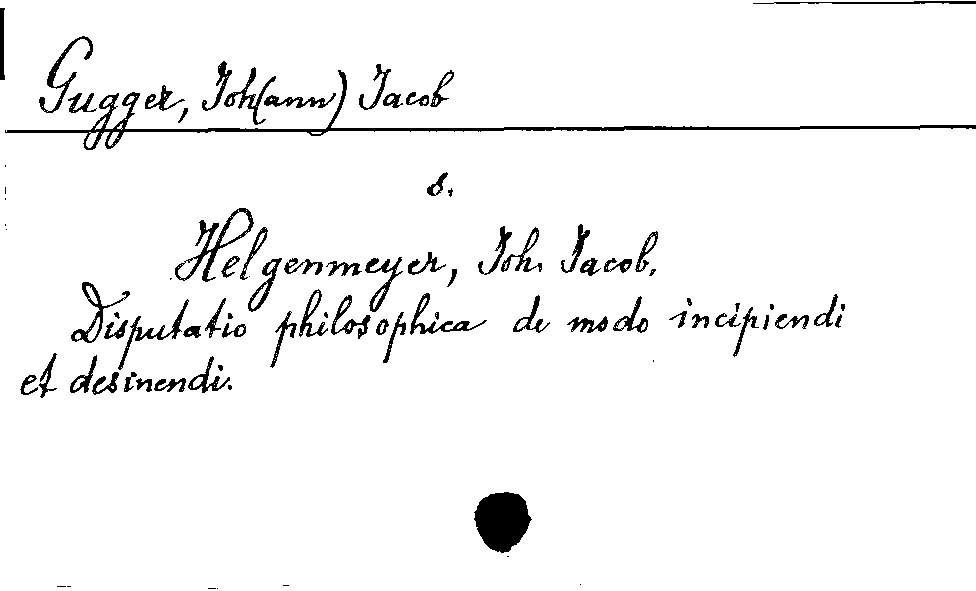 Gugger, Joh(ann) Jacob
s.
Helgenmeyer, Joh. Jacob.
Disputatio philosophica de modo incipiendi
et desinendi.